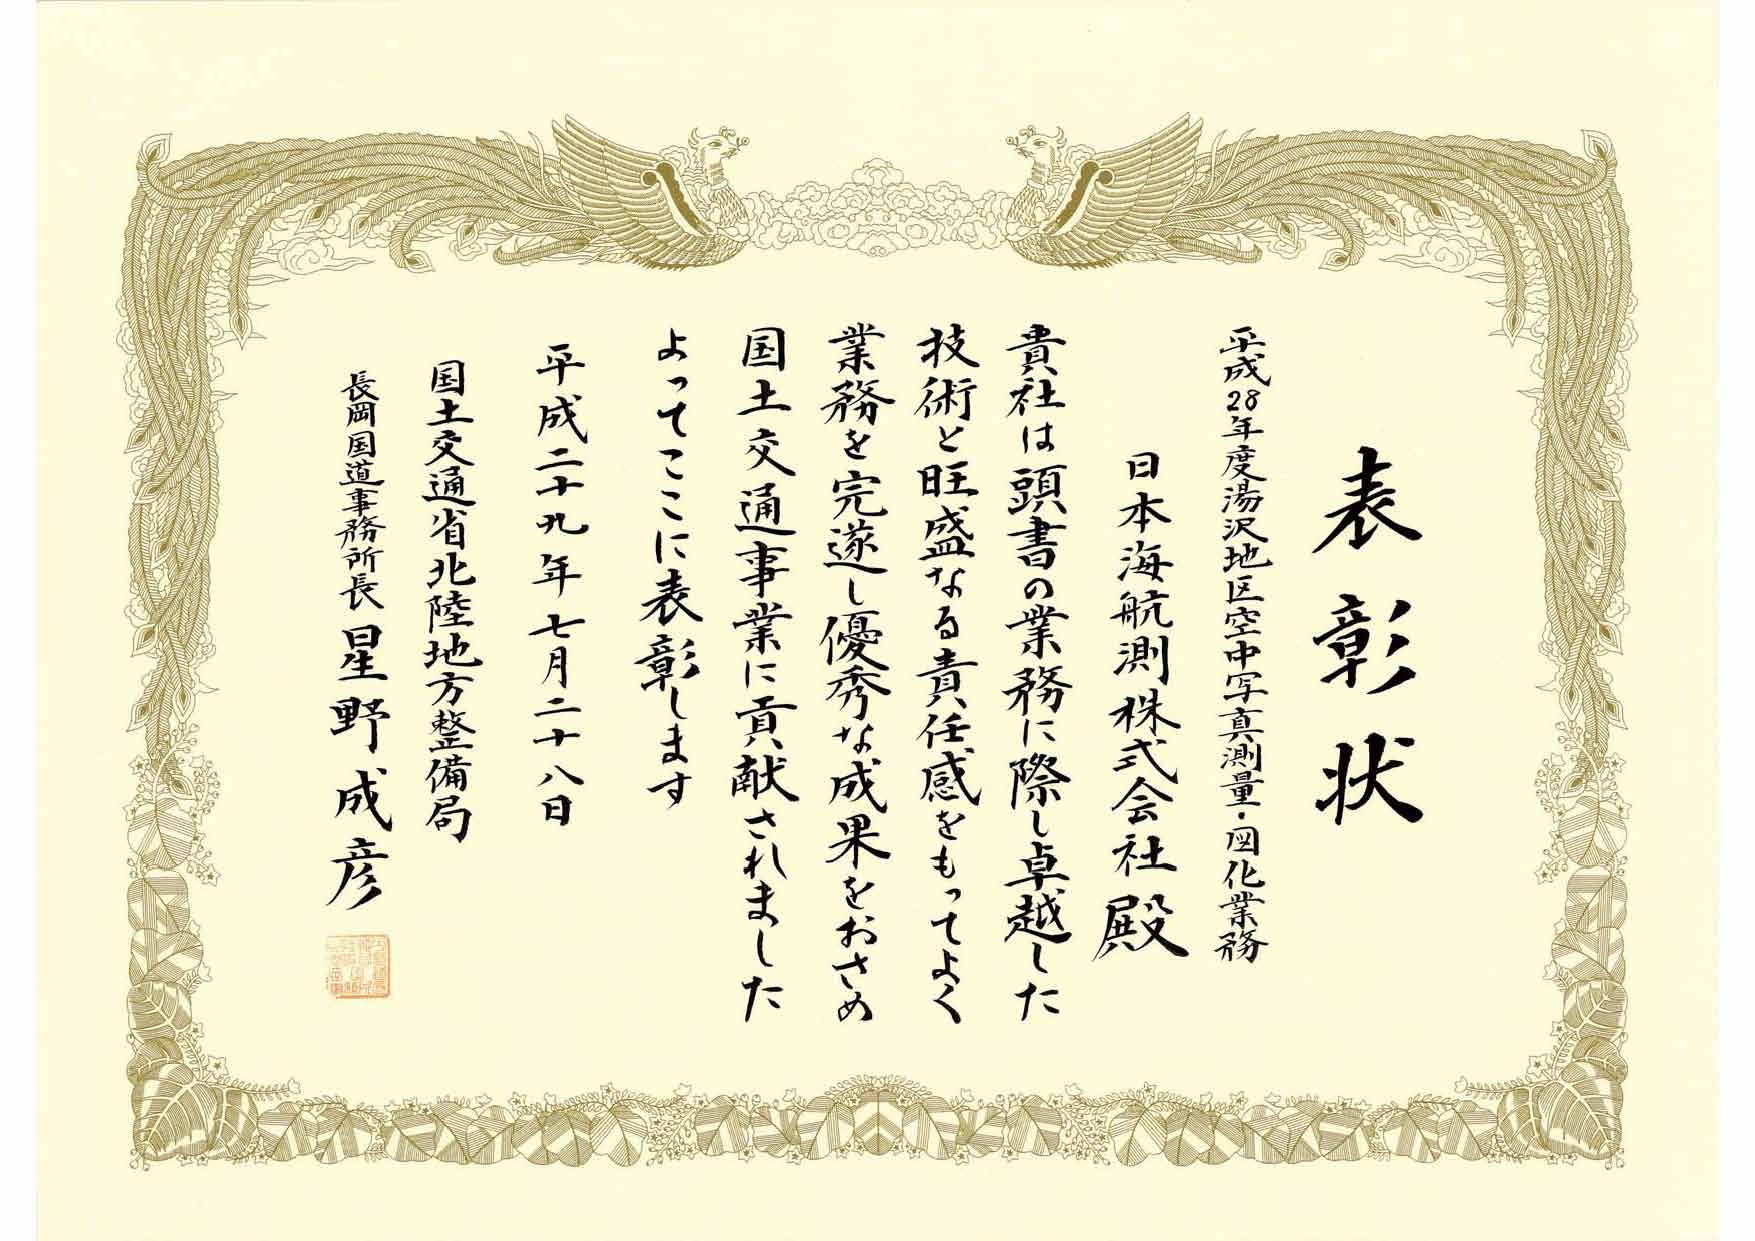 表彰状
平成28年度湯沢地区空中写真測量・図化業務
日本海航測株式会社殿
貴社は頭書の業務に際し卓越した
技術と旺盛なる責任感をもってよく
業務を完遂し優秀な成果をおさめ
国土交通事業に貢献されました
よってここに表彰します
平成二十九年七月二十八日
国土交通省北陸地方整備局
長岡国道事務所長星野成彦